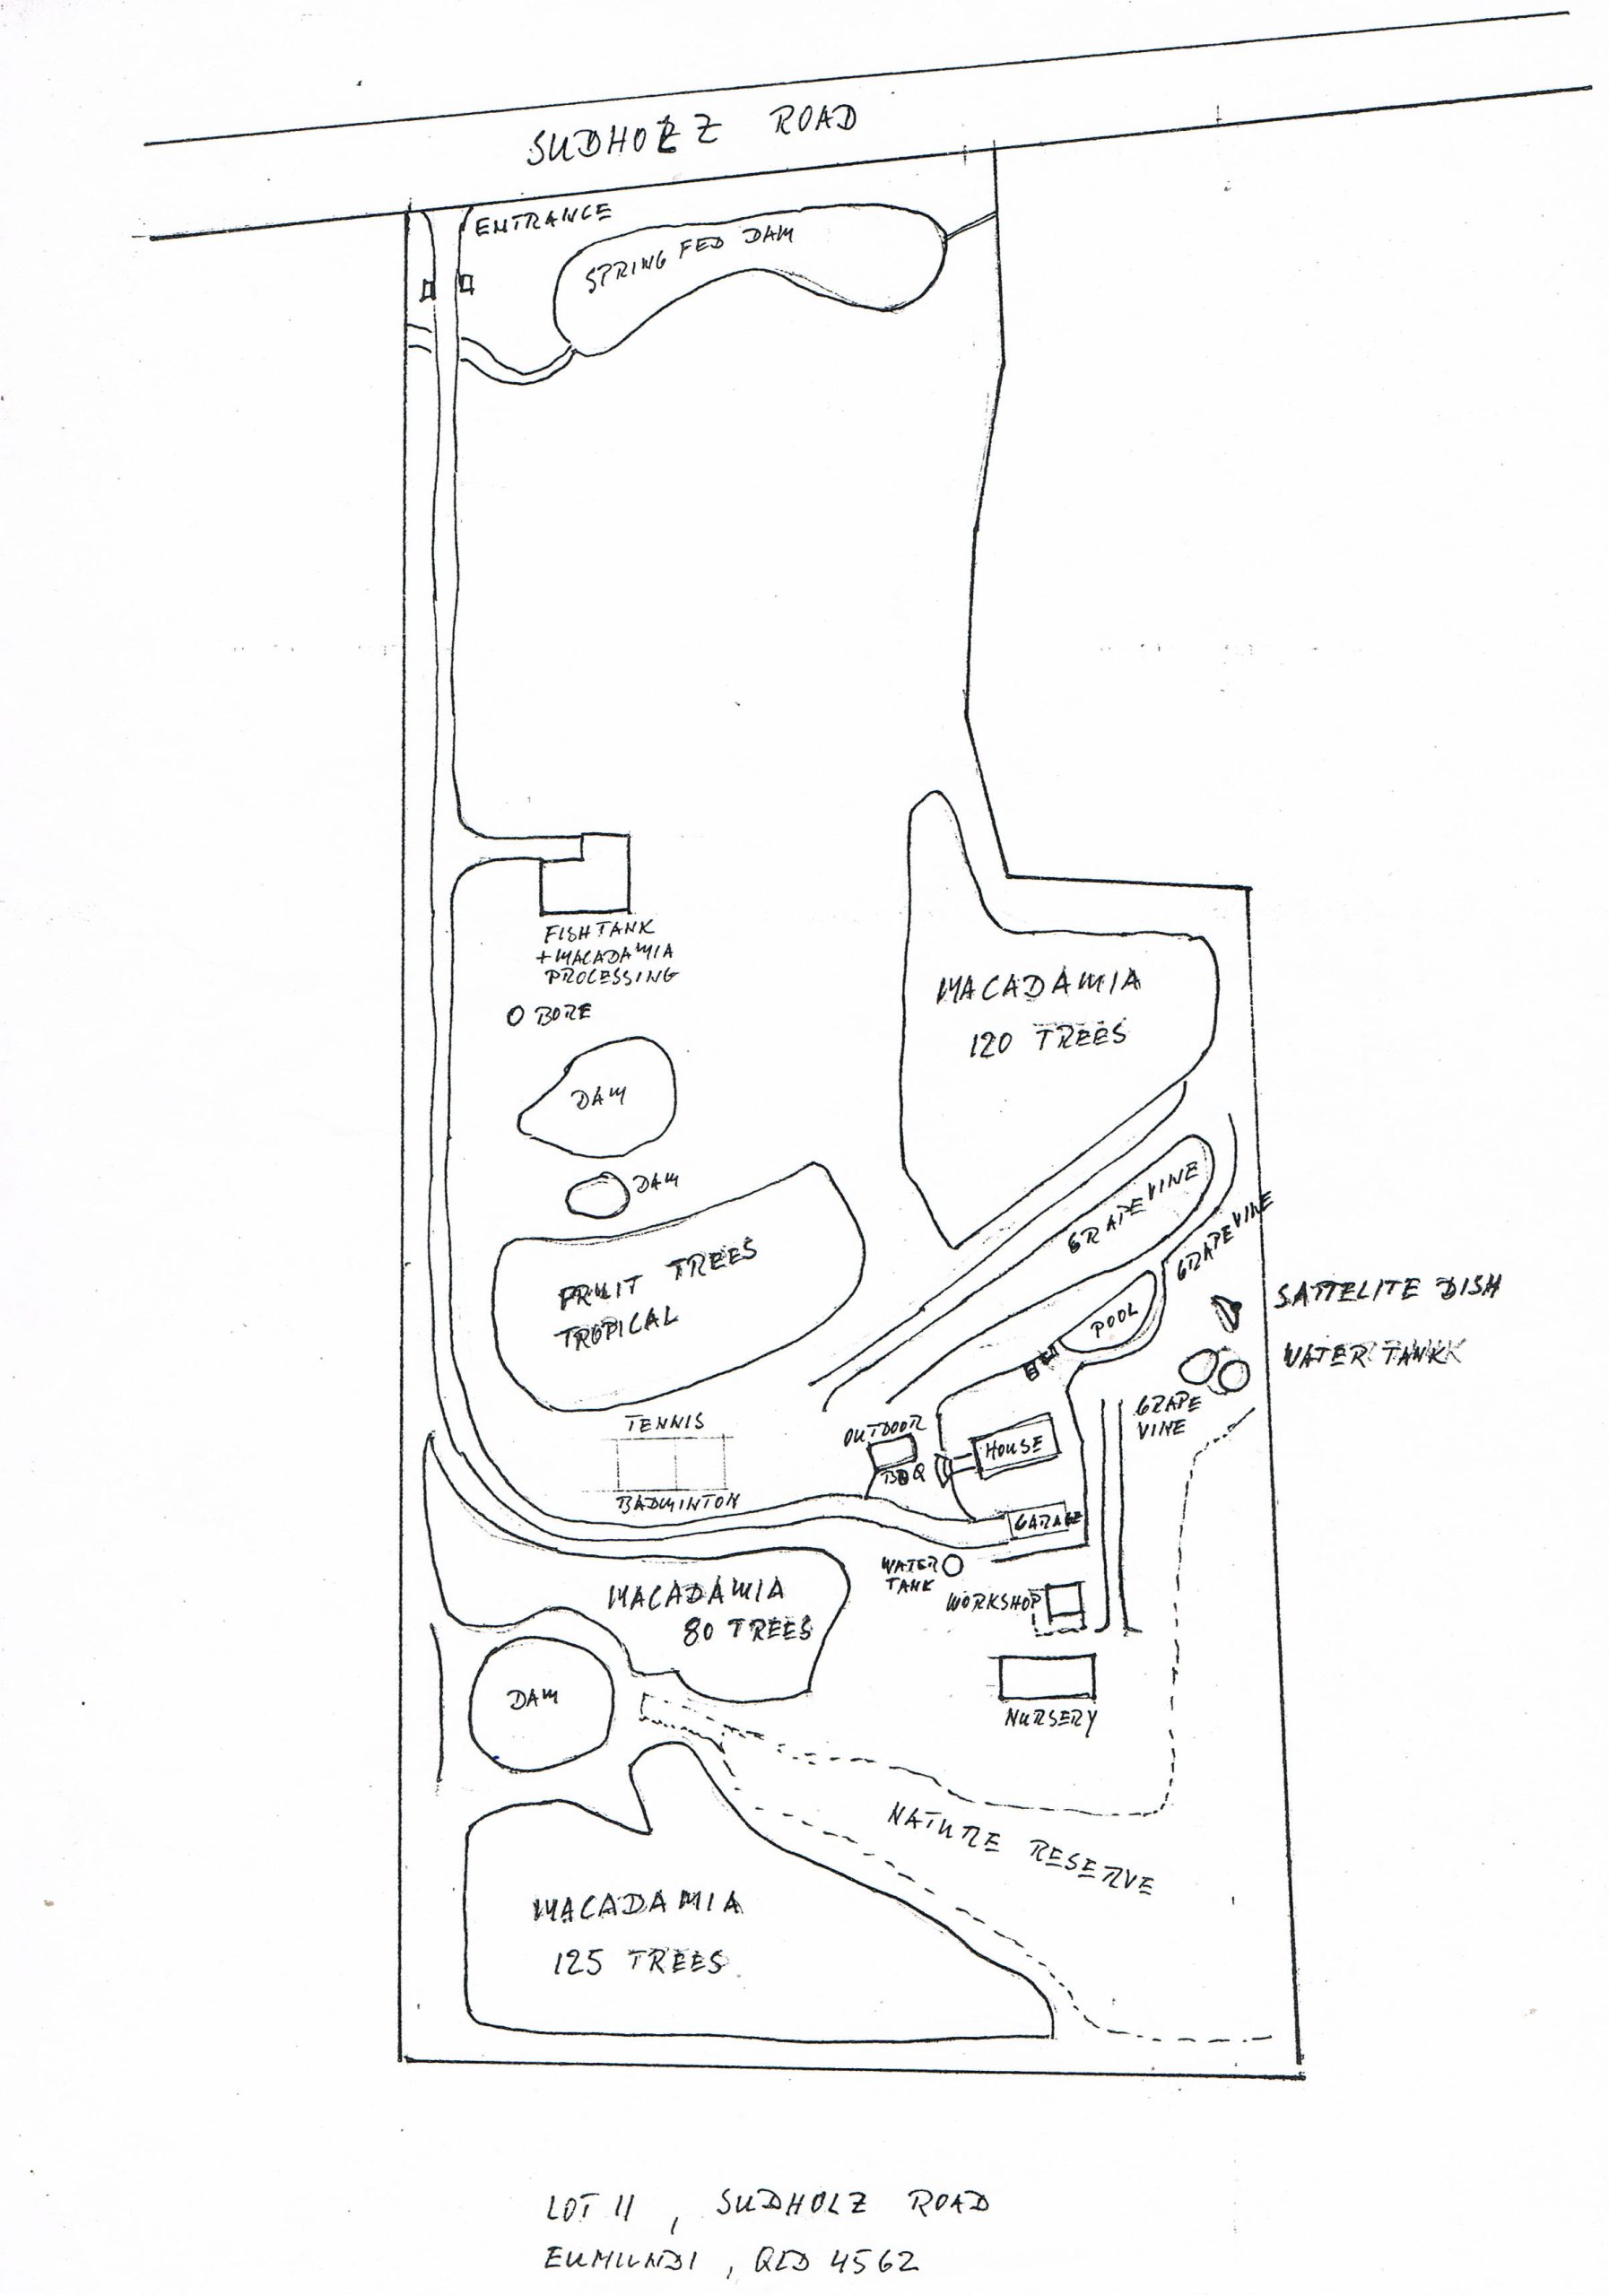 SUDHOLZ ROAD
ENTRANCE
SPRING FED DAM
FISHTANK
+MACADAMIA
PROCESSING
BORE
MACADAMIA
120 TREES
DAM
DAM
GRAPEVINE
GRAPEVINE
FRUIT TREES
TROPICAL
POOL
SATTELITE DISH
WATER TANKK
GRAPE
VINE
TENNIS
BADMINTON
OUTDOOR
BBQ
HOUSE
GARAGE
WATER
TANK
WORKSHOP
MACADAMIA
80 TREES
DAM
NURSERY
NATURE RESERVE
MACADAMIA
125 TREES
LOT 11, SUDHOLZ ROAD
EUMUNDI, QLD 4562